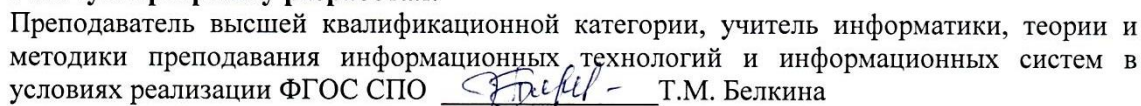 Преподаватель высшей квалификационной категории, учитель информатики, теории и
методики преподавания информационных технологий и информационных систем в
условиях реализации ФГОС СПО Т.М. Белкина